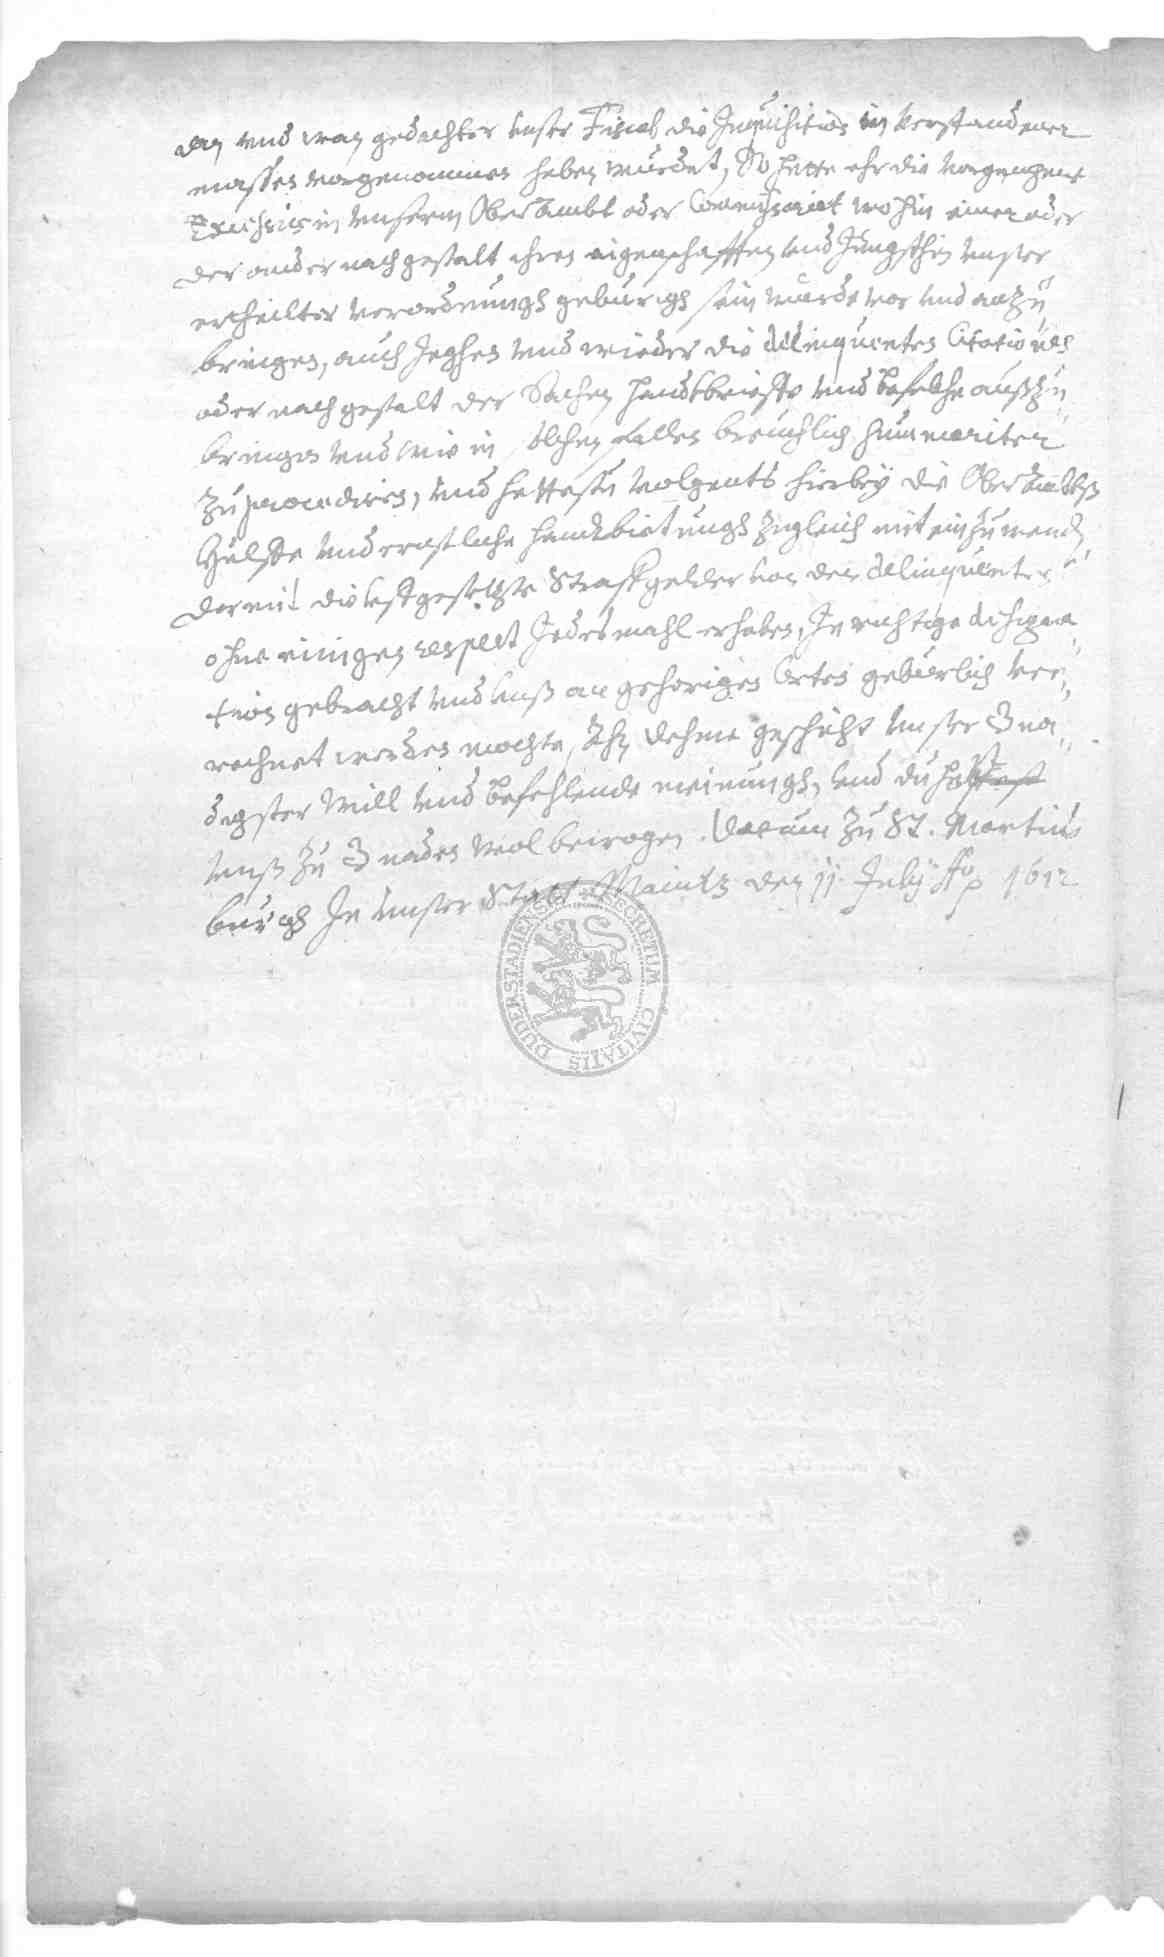 den und wan gedachter unser Fiscal die Inquisition in verstandener
massen vorgenommen haben würdet, So hette ehr die vorgangene
Excessus in unserm Oberambt oder Commissariat wohin einer oder
der ander nach gestalt ihren eigenschafften und Jungsthin unser
ertheilter verordnungh geburigh sein würde vor und anzu
bringen, auch Jeghen und wieder die delinquenten Citationes
oder nach gestalt der Sachen handtbrieffe und befelche außzu
bringen und wie in solchen fallen breuchlich summariter
zu procediren, und hettestu volgents hierbey die Oberambtß
Hulffe und ernstliche handtbietungh zugleich mit einzuwenden
damit die uffgesetzte Straffgelder von den delinquenten
ohne einigen respect Jedesmahl erhoben, In richtige designa
tion gebracht und unß an gehorigen Orten geburlich ver
rechnet werden mochte, An dehme geschicht unser Gna
digster Will und befehlende meinungh, und du
unß zu Gnaden wol bewogen. Datum zu St. Martins
burgh In unser Statt Maintz den 11 July Ao 1612
SECRETUM CIVITATIS DUDERSTADIENSIS